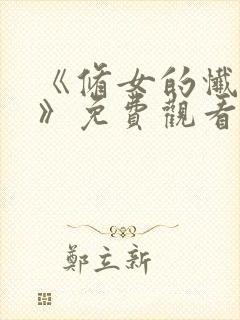 《脩女的懺
》免費觀看
鄭立新